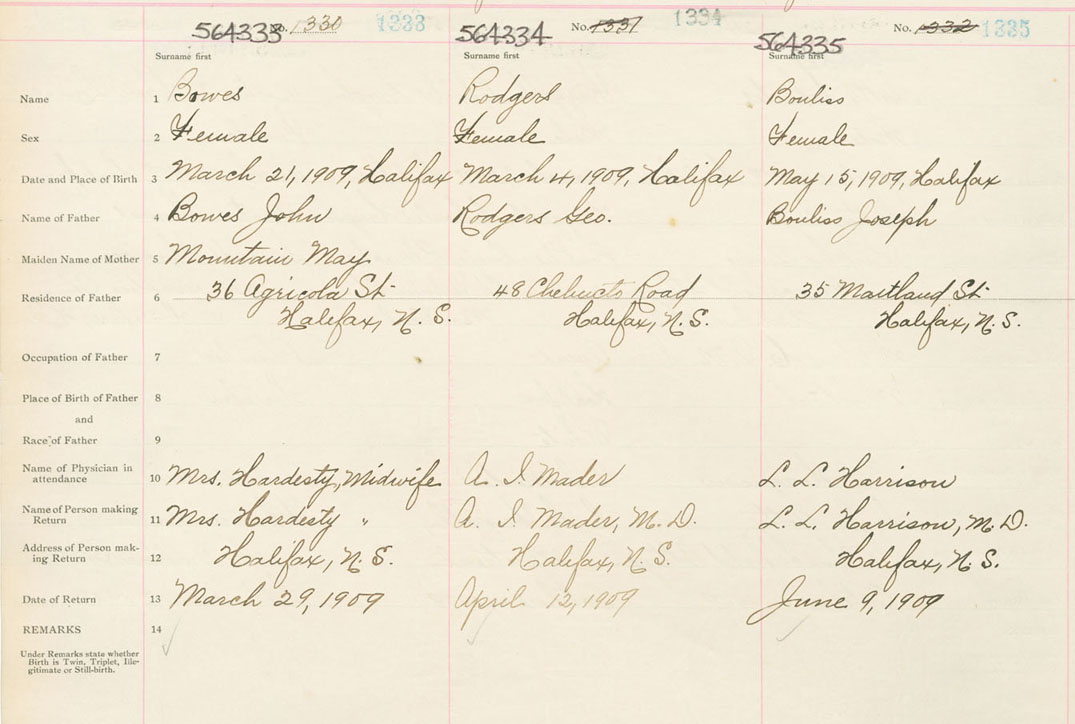 564333 No. 1330 1333 564334 No. 1331 1334 564335 No. 1332 1335
Surname first Surname first Surname first
Name 1 Bowes Rodgers Bouliss
Sex 2 Female Female Female
Date and Place of Birth 3 March 21, 1909, Halifax March 4, 1909, Halifax May 15, 1909, Halifax
Name of Father 4 Bowes John Rodgers Geo. Bouliss Joseph
Maiden Name of Mother 5 Mountain May
Residence of Father 6 36 Agricola St- 48 Chebucto Road 35 Maitland St-
Halifax, N. S. Halifax, N. S. Halifax, N. S.
Occupation of Father 7
Place of Birth of Father 8
and
Race of Father 9
Name of Physician in
attendance 10 Mrs. Hardesty, Midwife A. I. Mader L. L. Harrison
Name of Person making
Return 11 Mrs. Hardesty " A. I. Mader, M. D. L. L. Harrison, M. D.
Address of Person mak-
ing Return 12 Halifax, N. S. Halifax, N. S. Halifax, N. S.
Date of Return 13 March 29, 1909 April 12, 1909 June 9, 1909
REMARKS 14
Under Remarks state whether
Birth is Twin, Triplet, Ille-
gitimate or Still-birth.